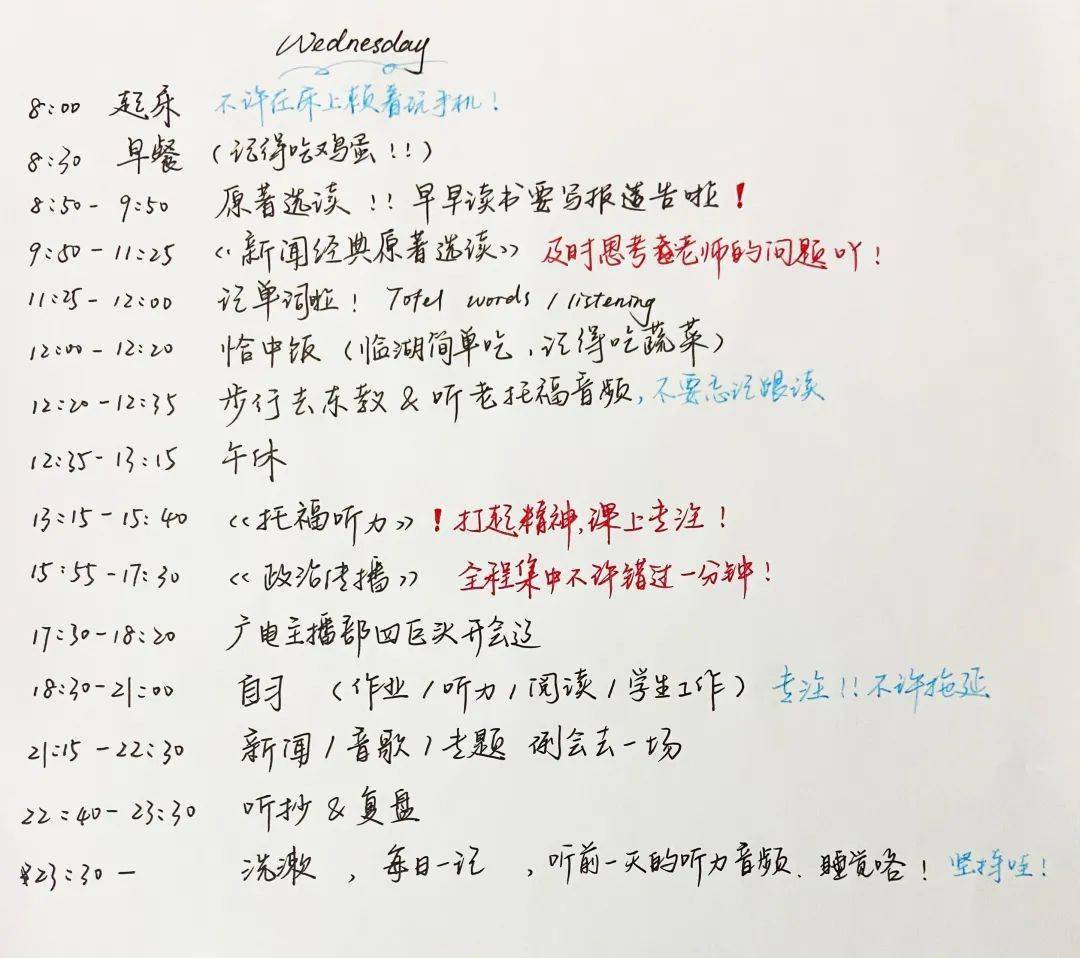 Wednesday
8:00 起床 不许在床上赖着玩手机!
8:30 早餐 (记得吃鸡蛋!!)
8:50-9:50 原著选读!! 早早读书要写报告啦!
9:50-11:25 《新闻经典原著选读》 及时思考老师的问题吖!
11:25-12:00 记单词啦! Tofel words / listening
12:00-12:20 恰中饭 (临湖简单吃,记得吃蔬菜)
12:20-12:35 步行去东教 & 听老托福音频,不要忘记跟读
12:35-13:15 午休
13:15-15:40 《托福听力》 !打起精神,课上专注!
15:55-17:30 《政治传播》 全程集中不许错过一分钟!
17:30-18:20 广电主播部四巨头开会
18:30-21:00 自习 (作业/听力/阅读/学生工作) 专注!!不许拖延
21:15-22:30 新闻/音歌/专题 例会去一场
22:40-23:30 听抄 & 复盘
23:30- 洗漱,每日一记,听前一天的听力音频.睡觉咯! 坚持哇!